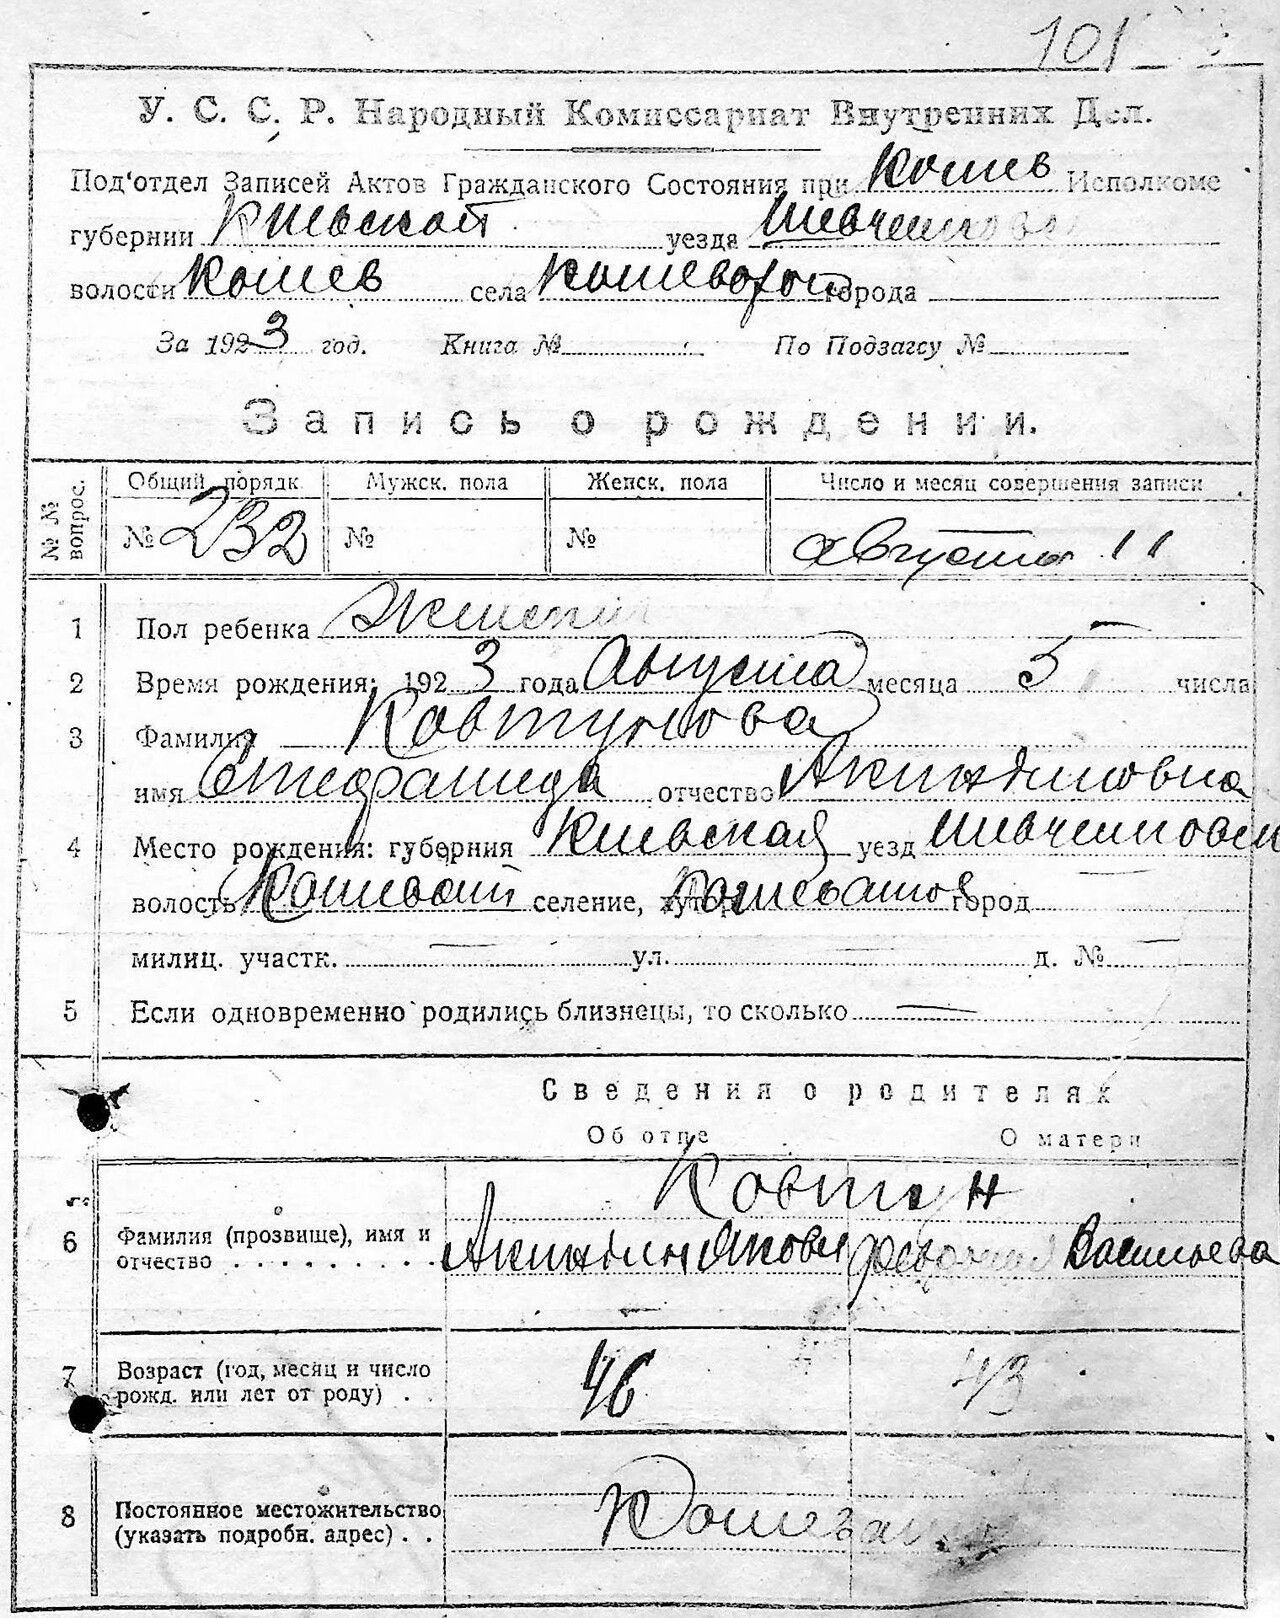 101
У. С. С. Р. Народный Комиссариат Внутренних Дел.
Под'отдел Записей Актов Гражданского Состояния при Кошев Исполкоме
губернии Киевской уезда Шевченков
волости Кошев села города
За 1923 год. Книга № По Подзагсу №
Запись о рождении.
№ № вопрос. Общий порядк. Мужск. пола Женск. пола Число и месяц совершения записи
№ 232 № № августа 11
1 Пол ребенка Женский
2 Время рождения: 1923 года Августа месяца 5 числа
3 Фамилия Ковтунова
имя Стефанида отчество Акиндиновна
4 Место рождения: губерния Киевская уезд Шевченковск
волость селение, хутор город
милиц. участк. — ул. — д. № —
5 Если одновременно родились близнецы, то сколько —
Сведения о родителях
Об отце О матери
Ковтун
6 Фамилия (прозвище), имя и Акиндин Яковл Васильева
отчество . . . . . . . . .
7 Возраст (год, месяц и число 46 43
рожд. или лет от роду) . .
8 Постоянное местожительство
(указать подробн. адрес) . .